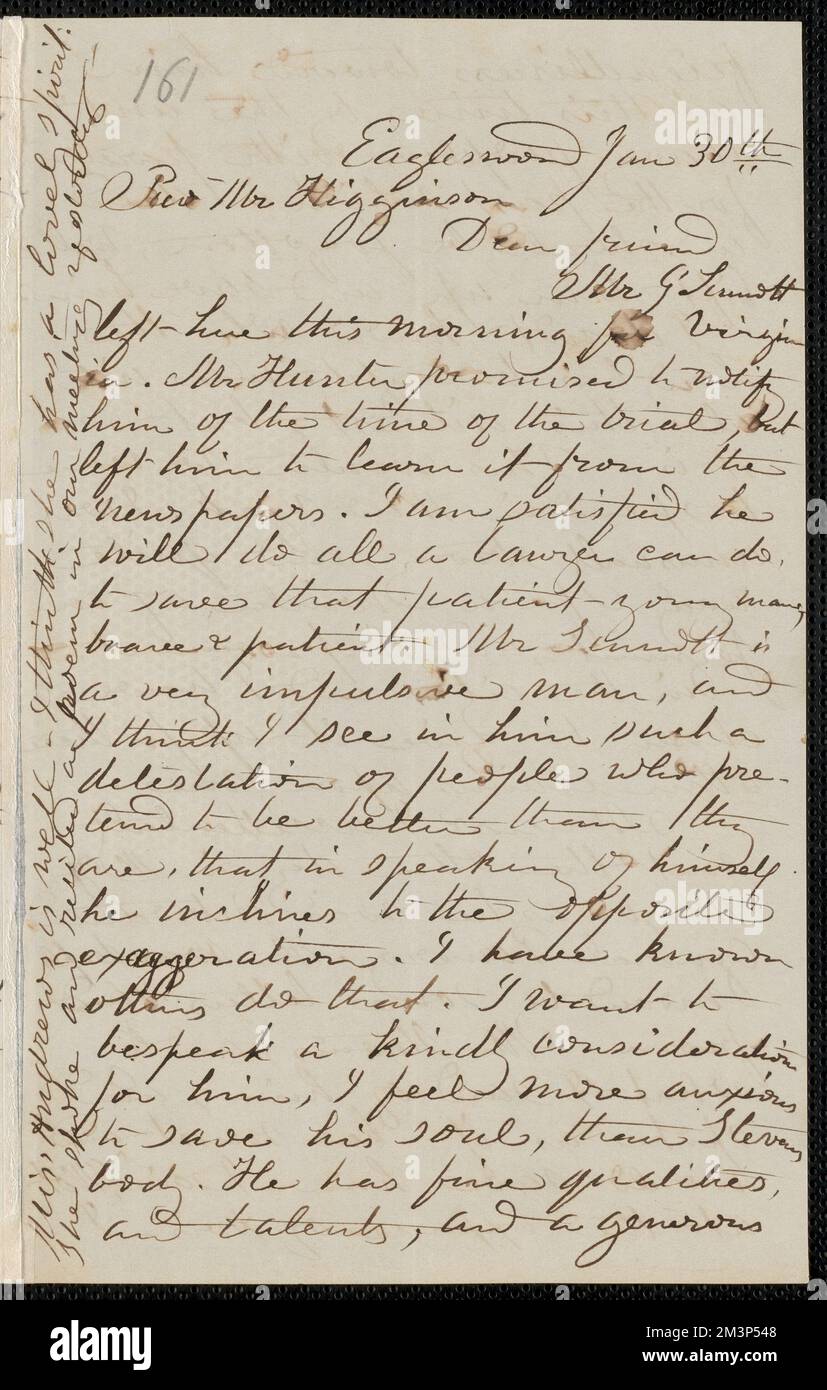 161
Eagleswood Jan 30th
Rev Mr Higginson
Dear friend
Mr G Sennott
left here this morning for Virgin
ia. Mr Hunter promised to notify
him of the time of the trial, but
left him to learn it from the
newspapers. I am satisfied he
will do all a lawyer can do,
to save that patient young man,
brave & patient. Mr Sennott is
a very impulsive man, and
I think I see in him such a
detestation of people who pre-
tend to be better than they
are, that in speaking of himself
he inclines to the opposite
exaggeration. I have known
others do that. I want to
bespeak a kindly consideration
for him, I feel more anxious
to save his soul, than Stevens
body. He has fine qualities,
and talents, and a generous
Miss Andrews is well - I think she has a lovely spirit:
She spoke and recited a poem in our meeting yesterday
alamy
Image ID: 2M3P548
www.alamy.com